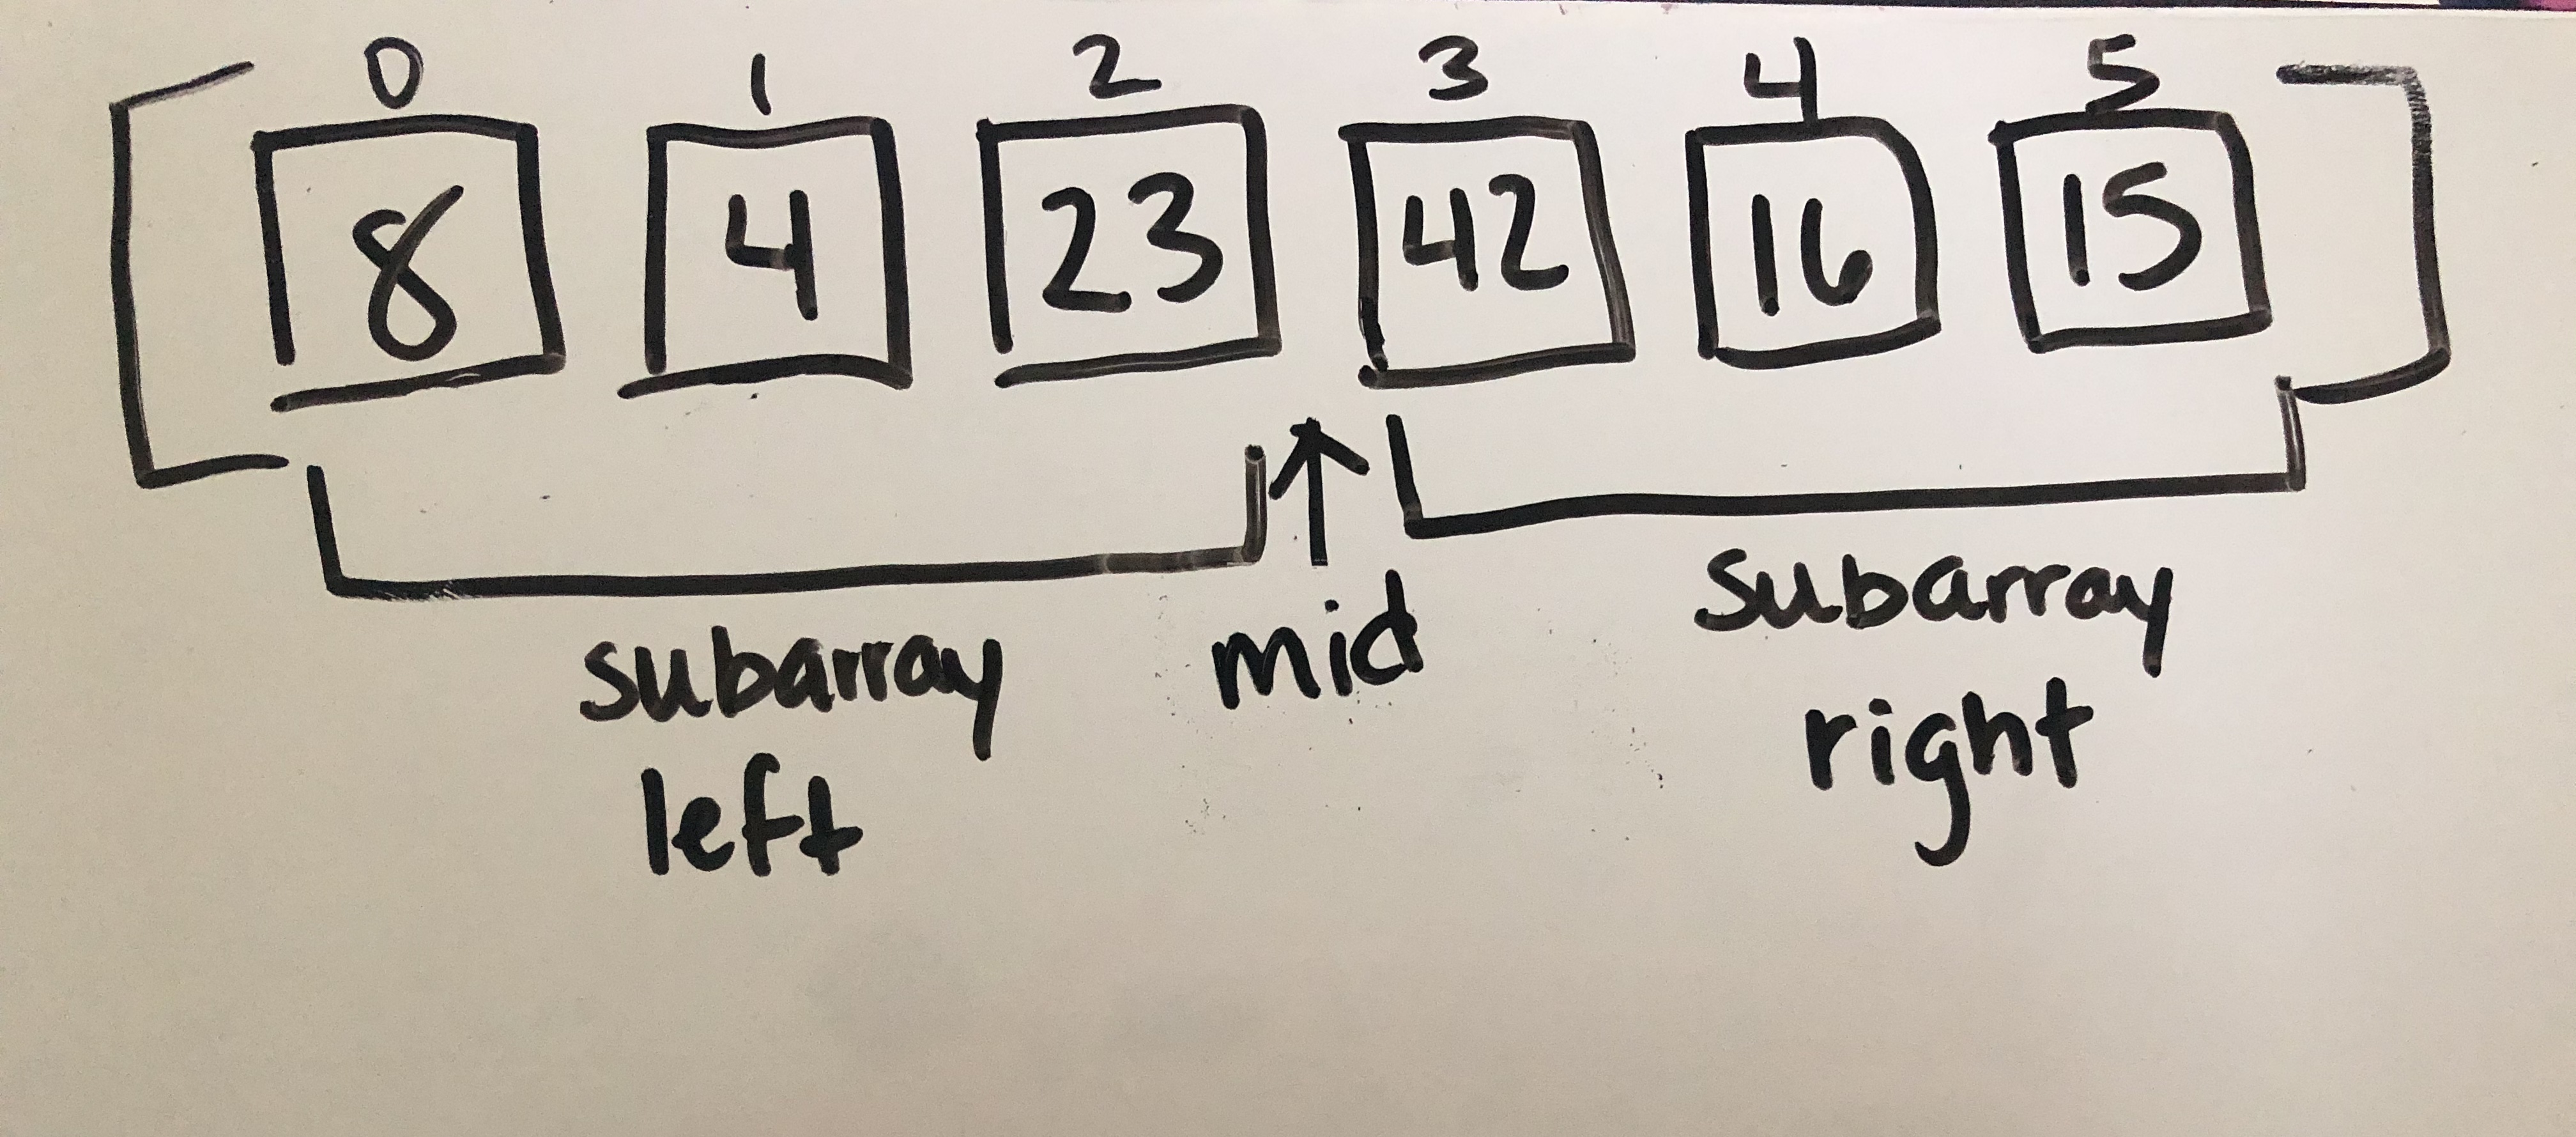 0 1 2 3 4 5
8 4 23 42 16 15
subarray left
mid
subarray right